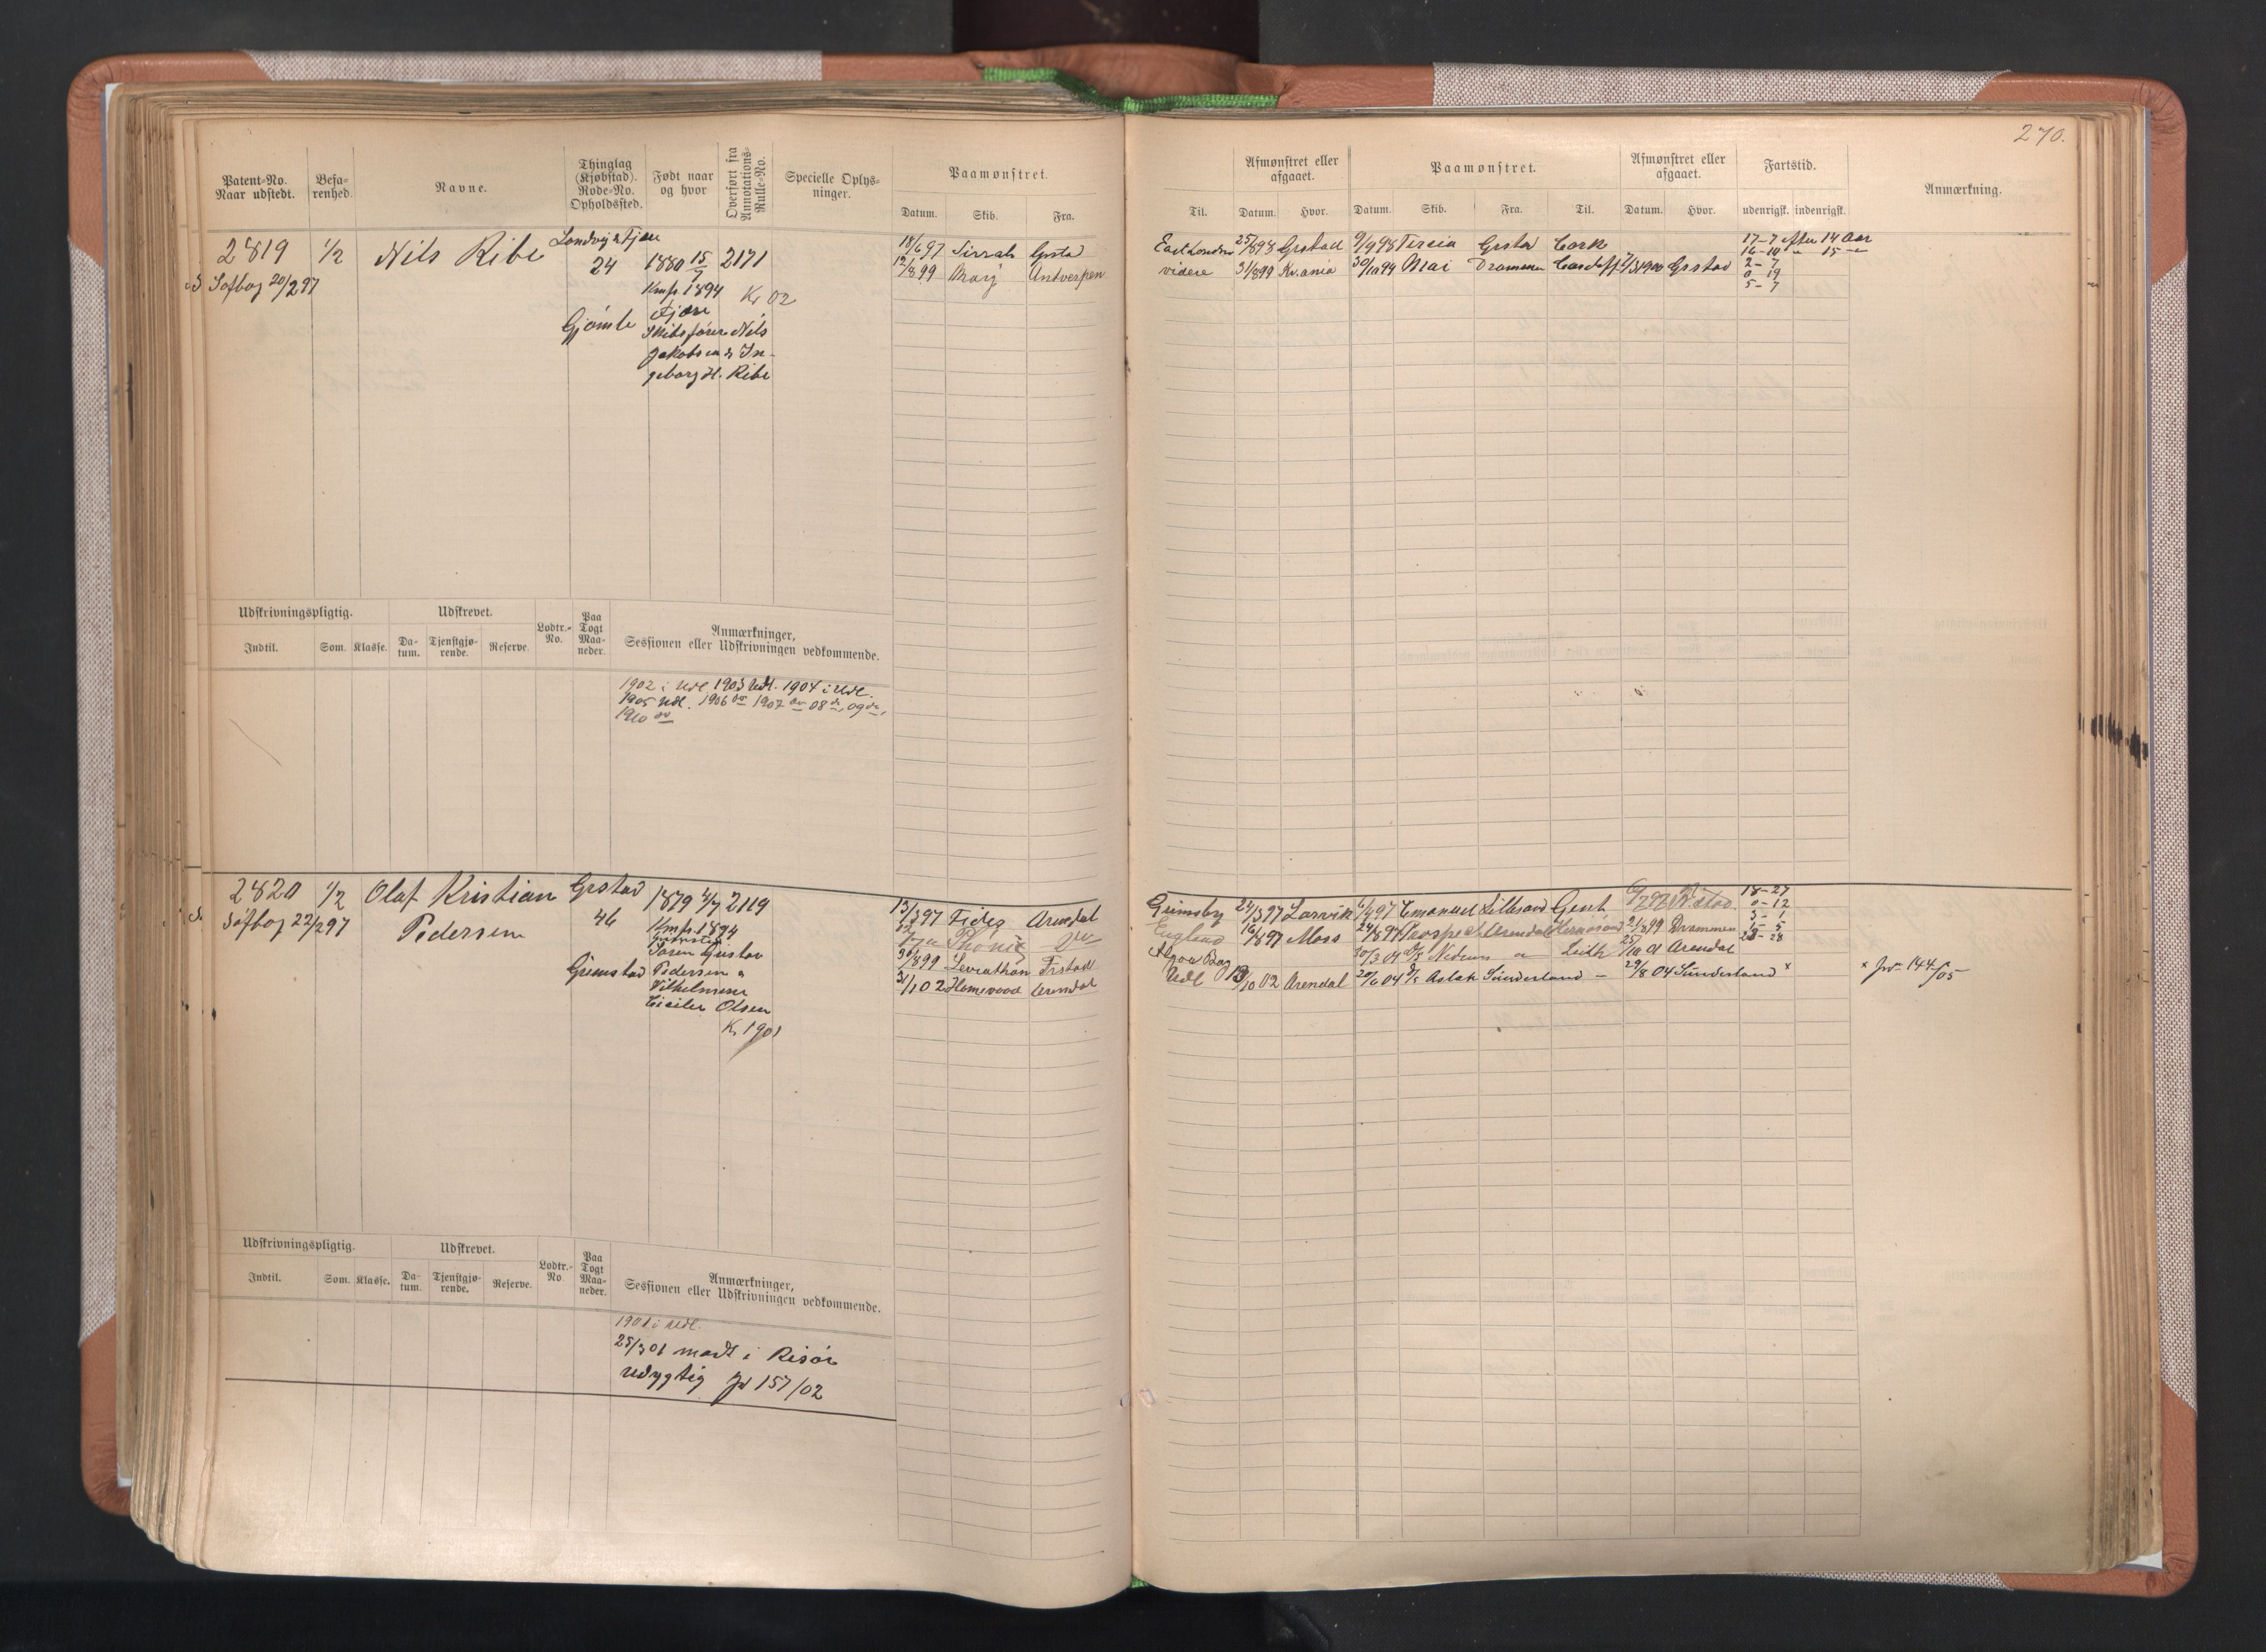 270.
Patent-No. Naar udstedt.
Befarenhed.
Navne.
Thinglag (Kjøbstad). Rode-No. Opholdssted.
Født naar og hvor
Overført fra Annotations-Rulle-No.
Specielle Oplysninger.
Paamønstret.
Datum. Skib. Fra.
Til.
Afmønstret eller afgaaet.
Datum. Hvor.
Paamønstret.
Datum. Skib. Fra. Til.
Afmønstret eller afgaaet.
Datum. Hvor.
Fartstid.
udenrigsk. indenrigsk.
Anmærkning.
2819 1/2 Nils Ribe
Søfbog 20/2 97
Landvig & Fjære
24
Gjømle
1880 15/7 2171
Kmfr. 1894 Kr 02
Fjære
Skibsfører Nils
Jakobsen & In-
geborg H. Ribe
18/6 97 Sirrah Grstad
East London 25/8 98 Grstad 9/9 98 Tersia Grstad Cork
17-7 efter 14 Aar
8 99 Marij Antverpen
videre 31/8 99 Kr.ania 30/10 99 Mai Drammen Cardiff 1900 Grstad
16-10 " 15 "
2-7
0-19
5-7
Udskrivningspligtig.
Indtil. Som. Klasse.
Udskrevet.
Datum. Tjenstgjørende. Reserve.
Lodtr.-No.
Paa Togt Maaneder.
Anmærkninger, Sessionen eller Udskrivningen vedkommende.
1902 i Udl. 1903 Udl. 1904 i Udl.
1905 Udl. 1906 do 1907 do 08 do, 09 do,
1910 do
2820 1/2 Olaf Kristian
Pedersen
Søfbog 22/2 97
Grstad
46
Grimstad
1879 4/7 2119
Kmfr. 1894
Grimstad
Søren Gustav
Pedersen &
Vilhelmine
Cicilie Olsen
Kr 1901
13/3 97 Fides Arendal
Phönix do
/8 99 Leviathan Frstad
/1 02 Homewood Arendal
Grimsby 24/5 97 Larvik /7 97 Emanuel Lillesand Gent
England 16/8 97 Moss 24/8 97 Prospect Arendal Hernösand 21/8 99 Drammen
Algoa Bay
30/3 01 D/S Nedenes a Leith 25/10 01 Arendal
Udl 13/10 02 Arendal 20/6 04 D/S Aslak Sunderland - 29/8 04 Sunderland x
x Jr 144/05
18-27
0-12
5-1
28-28
Udskrivningspligtig.
Indtil. Som. Klasse.
Udskrevet.
Datum. Tjenstgjørende. Reserve.
Lodtr.-No
Paa Togt Maaneder.
Anmærkninger, Sessionen eller Udskrivningen vedkommende.
1901 i Udl.
25/3 01 mødt i Risør
udygtig Jr 157/02